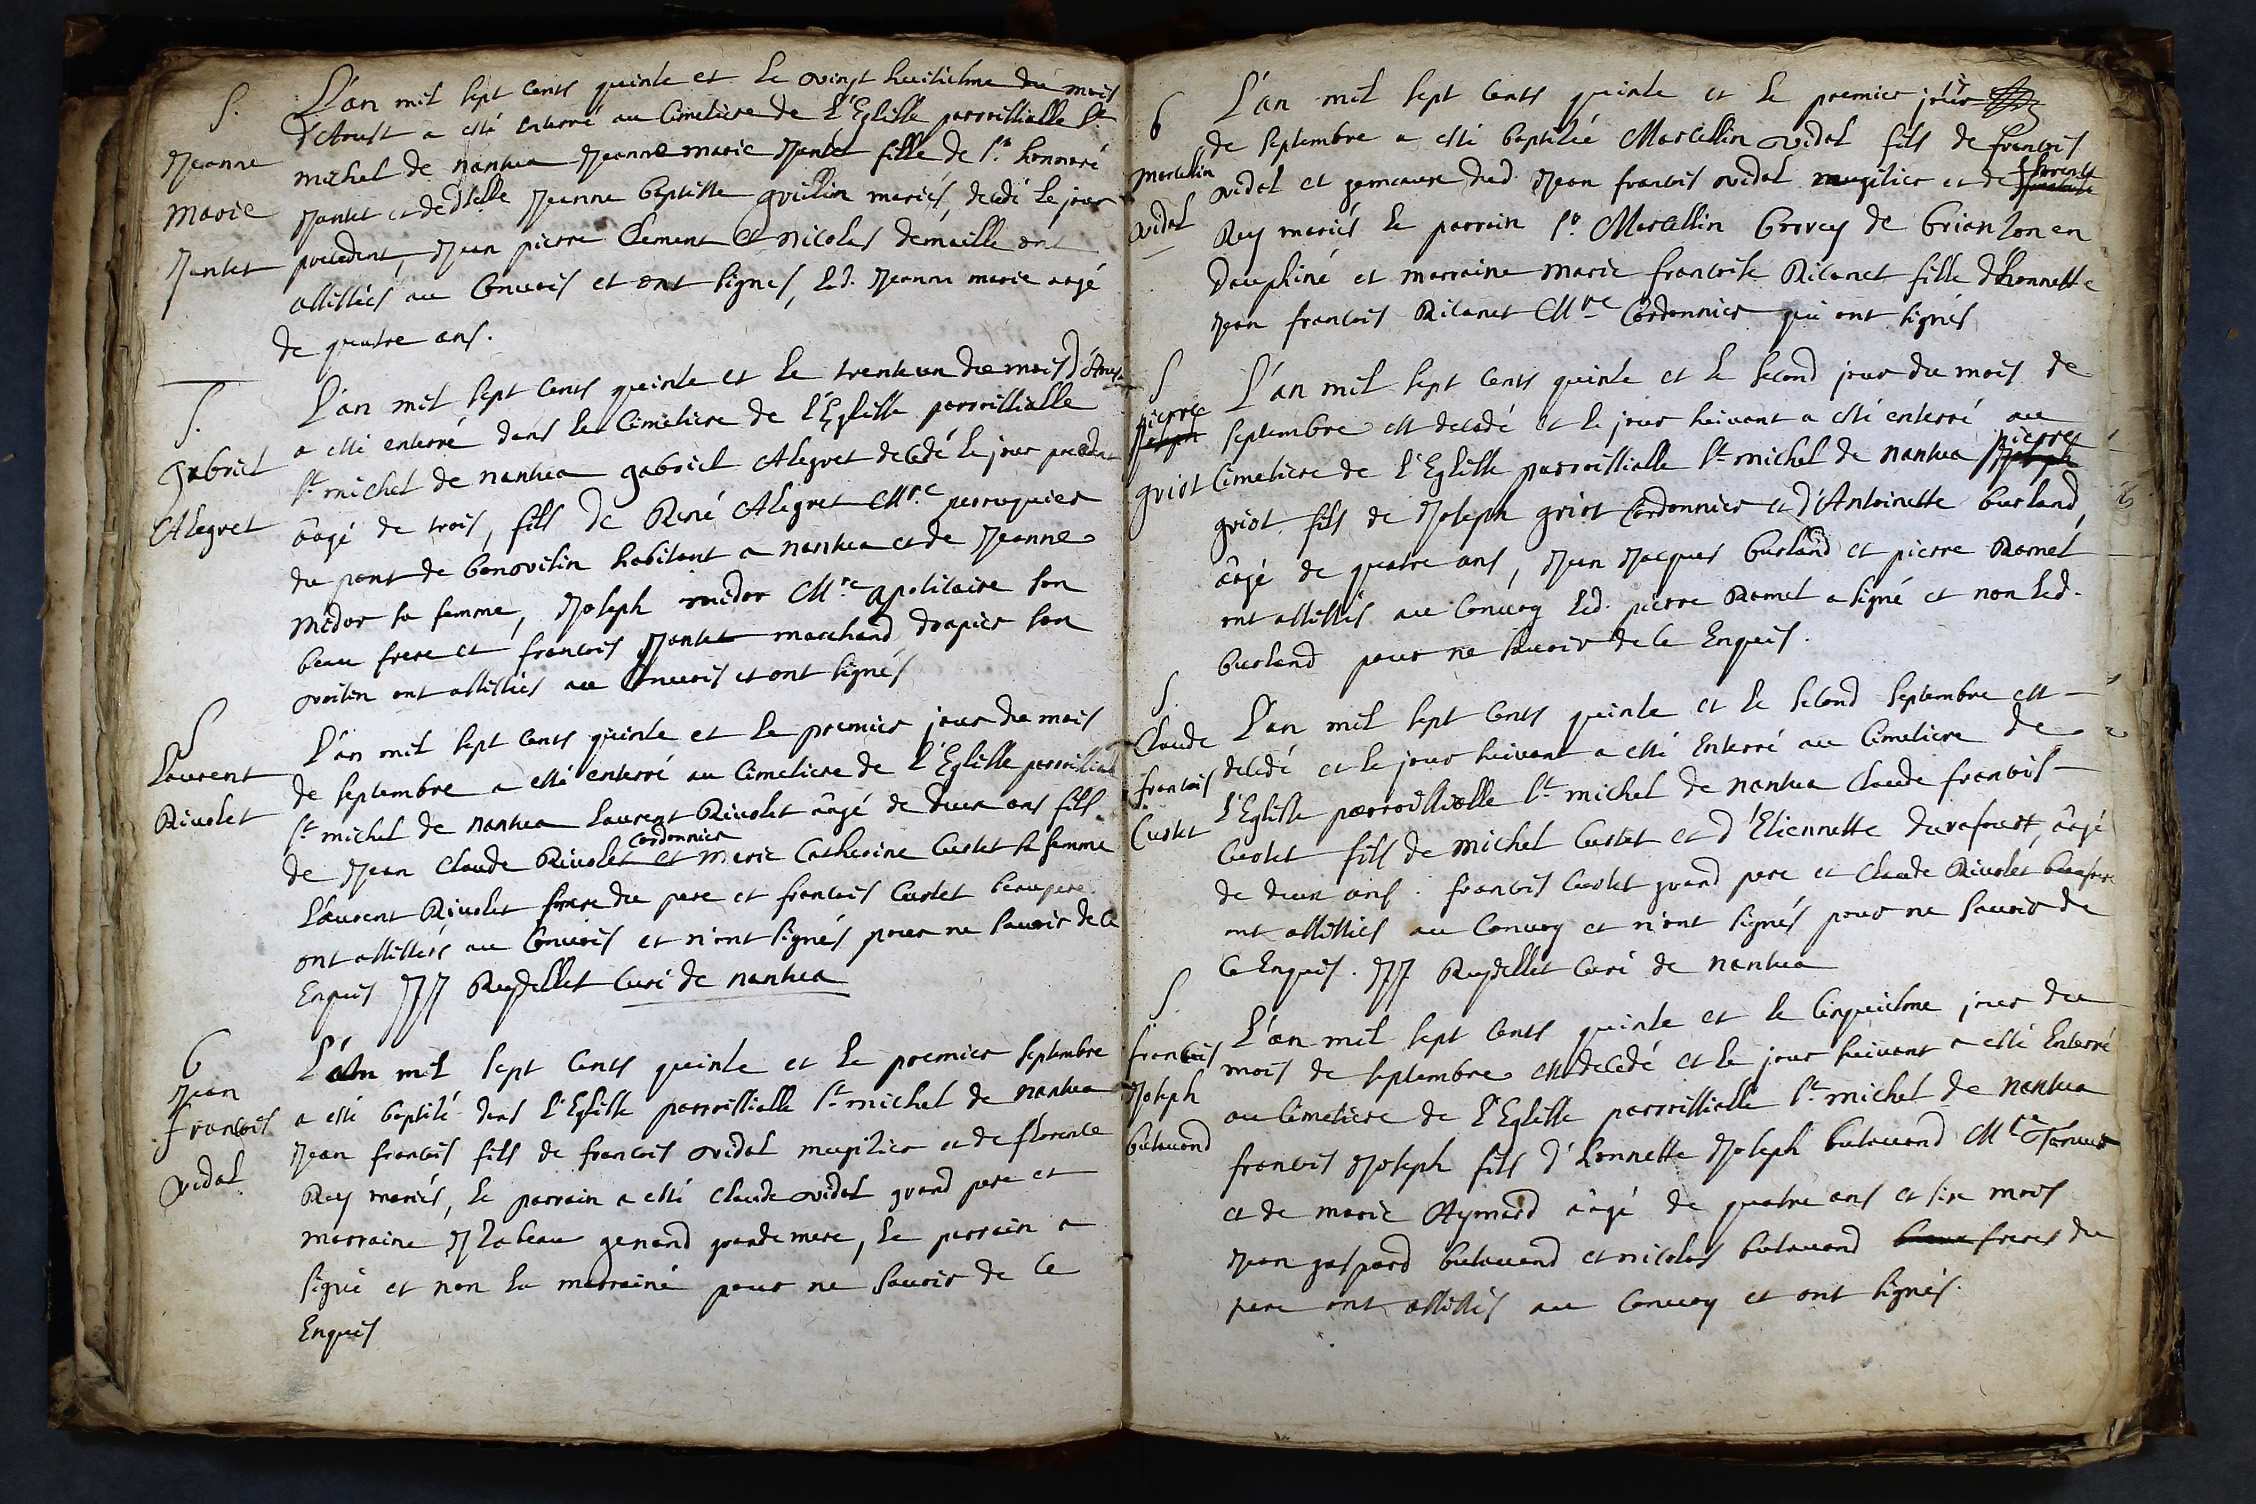 S.
Jeanne
Marie
Jantet
L'an mil sept cents quinze et le vingt huitiesme du mois
d'Aoust a esté enterré au Cimetiere de l'Eglise parroissialle St
michel de nantua Jeanne marie Jantet fille de Sr honnoré
Jantet et de dlle Jeanne baptiste guillin mariés, decedé le jour
precedent, Jean pierre Clement et Nicolas demaille ont
assistés au Convois et ont signes, led. Jeanne marie aagé
de quatre ans.
S.
Gabriel
Alegret
L'an mil sept cents quinze et le trente un du mois d'Aoust
a esté enterré dans le Cimetiere de l'Eglise parroissialle
St michel de nantua gabriel Alegret decedé le jour precedent
âagé de trois, fils de René Alegret Mre perruquier
du pont de bonvoisin habitant a nantua et de Jeanne
midor sa femme, Joseph midor Mre apoticaire son
beau frere et francois Jantet marchand drapier son
voisin ont assistés au Convois et ont signés
S
Laurent
Rivolet
L'an mil sept cents quinze et le premier jour du mois
de septembre a esté enterré au Cimetiere de l'Eglise parroissialle
St michel de nantua laurent Rivolet âagé de deux ans fils
de Jean Claude Rivolet Cordonnier et Marie Catherine Curtet sa femme
Laurent Rivolet frere du pere et francois Curtet beaupere
ont assistés au Convois et n'ont signés pour ne savoir de ce
Enquis JJ Reydellet Curé de nantua
6
Jean
francois
vidal
L'an mil sept cents quinze et le premier septembre
a esté baptisé dans l'Eglise parroissialle St michel de nantua
Jean francois fils de francois vidal mugitier et de florence
Rey mariés, le parrain a esté Claude vidal grand pere et
marraine Izabeau genand grande mere, le parrain a
signé et non la marrainé pour ne savoir de ce
Enquis
6
Marcellin
vidal
L'an mil sept cents quinze et le premier jour
de septembre a esté baptisée Marcellin vidal fils de francois
vidal et gemeaux dud. Jean francois vidal mugitier et de florence
Rey mariés le parrain Sr Marcellin Grovey de brianzon en
dauphiné et marraine marie francoise Ricanet fille d'honneste
Jean francois Ricanet Mre Cordonnier qui ont signés
S
pierre
Joseph
griot
L'an mil sept cents quinze et le second jour du mois de
septembre est decedé et le jour suivant a esté enterré au
Cimetiere de l'Eglise parroissialle St michel de nantua Joseph pierre
griot fils de Joseph griot Cordonnier et d'Antoinette burland
âagé de quatre ans, Jean Jacques burland et pierre Ramel
ont assistés au Convoy led. pierre Ramel a signé et non led.
burland pour ne savoir de ce Enquis.
S.
Claude
francois
Curtet
L'an mil sept cents quinze et le second septembre est
decedé et le jour suivant a esté Enterré au Cimetiere de
l'Eglise parroissialle St michel de nantua Claude francois
Curtet fils de michel Curtet et d'Etiennette durafourt, âagé
de deux ans. francois Curtet grand pere et Claude Rivolet beaufrere
ont assistés au Convoy et n'ont signés pour ne savoir de
ce Enquis. JJ Reydellet Curé de nantua
S.
francois
Joseph
butavand
L'an mil sept cents quinze et le Cinquiesme jour du
mois de septembre est decedé et le jour suivant a esté Enterré
au Cimetiere de l'Eglise parroissialle St michel de nantua
francois Joseph fils d'honneste Joseph butavand Mre Tanneur
et de marie Aymard âagé de quatre ans et six mois
Jean gaspard butavand et nicolas butavand beaux freres du
pere ont assistés au Convoy et ont signés.